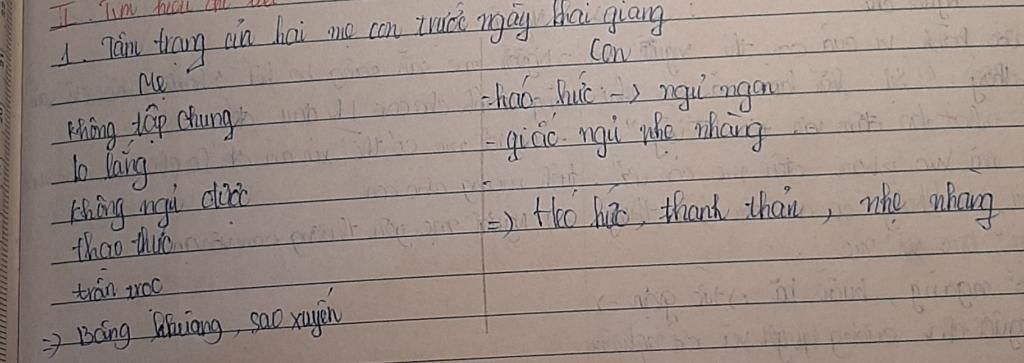 II. Tìm hiểu chi tiết
1. Tâm trạng của hai mẹ con trước ngày khai giảng
Mẹ
Con
không tập chung
lo lắng
không ngủ được
thao thức
trằn trọc
=> Bâng khuâng, sao xuyến
- háo hức -> ngủ ngon
- giấc ngủ nhẹ nhàng
=> Háo hức, thanh thản, nhẹ nhàng